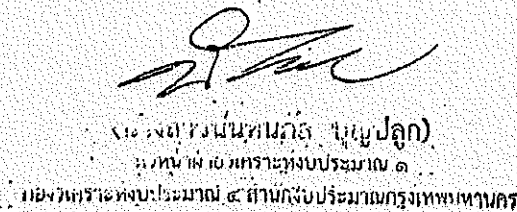 (นางสาวนันทนภัส บุญปลูก)
หัวหน้าฝ่ายวิเคราะห์งบประมาณ ๑
กองวิเคราะห์งบประมาณ ๔ สำนักงบประมาณกรุงเทพมหานคร